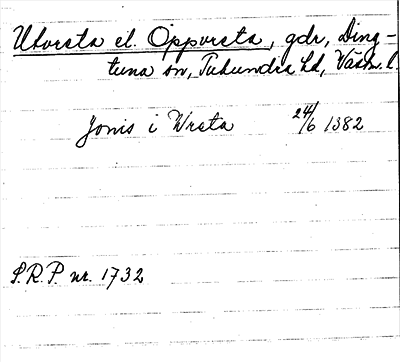 Utorsta el. Opporsta, gdr, Ding-
tuna sn, Tuhundra hd, Västm. l.
Jonis i Wrsta 24/6 1382
S.R.P. nr. 1732